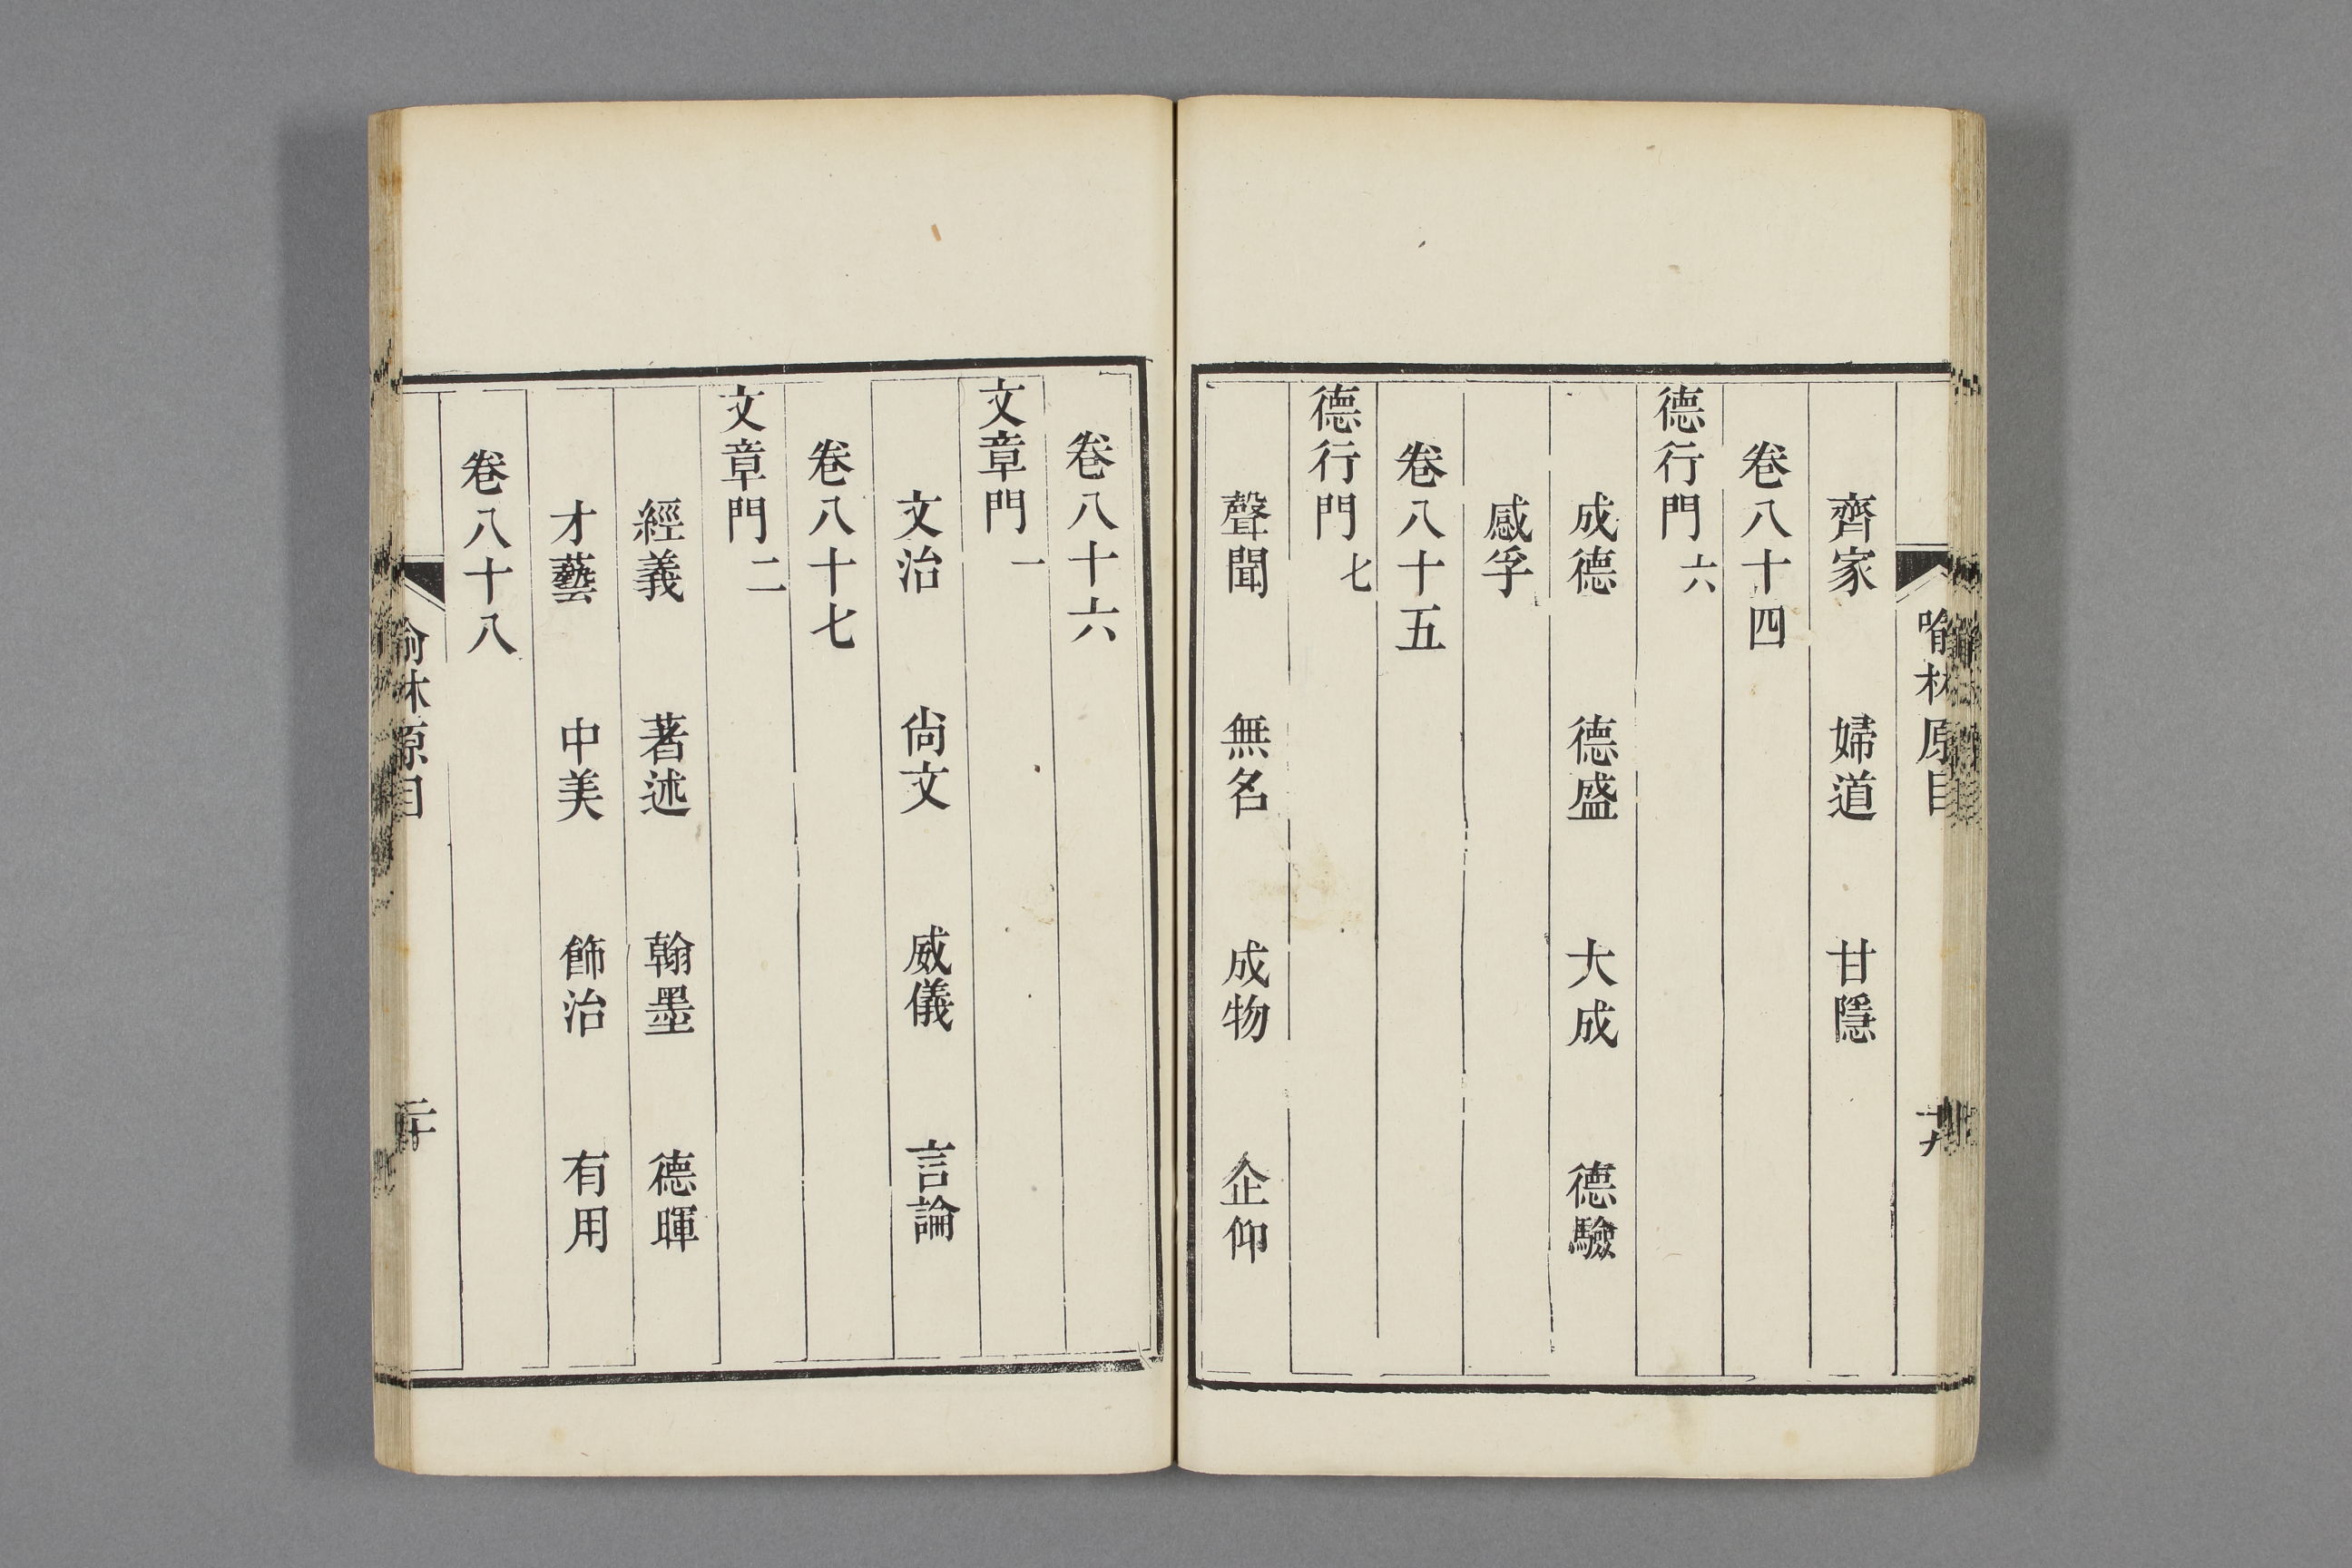 喻林原目
十九
齊家　婦道　甘隱
卷八十四
德行門六
成德　德盛　大成　德驗
感孚
卷八十五
德行門七
聲聞　無名　成物　企仰
卷八十六
文章門一
文治　尙文　威儀　言論
卷八十七
文章門二
經義　著述　翰墨　德暉
才藝　中美　飾治　有用
卷八十八
喻林原目
二十